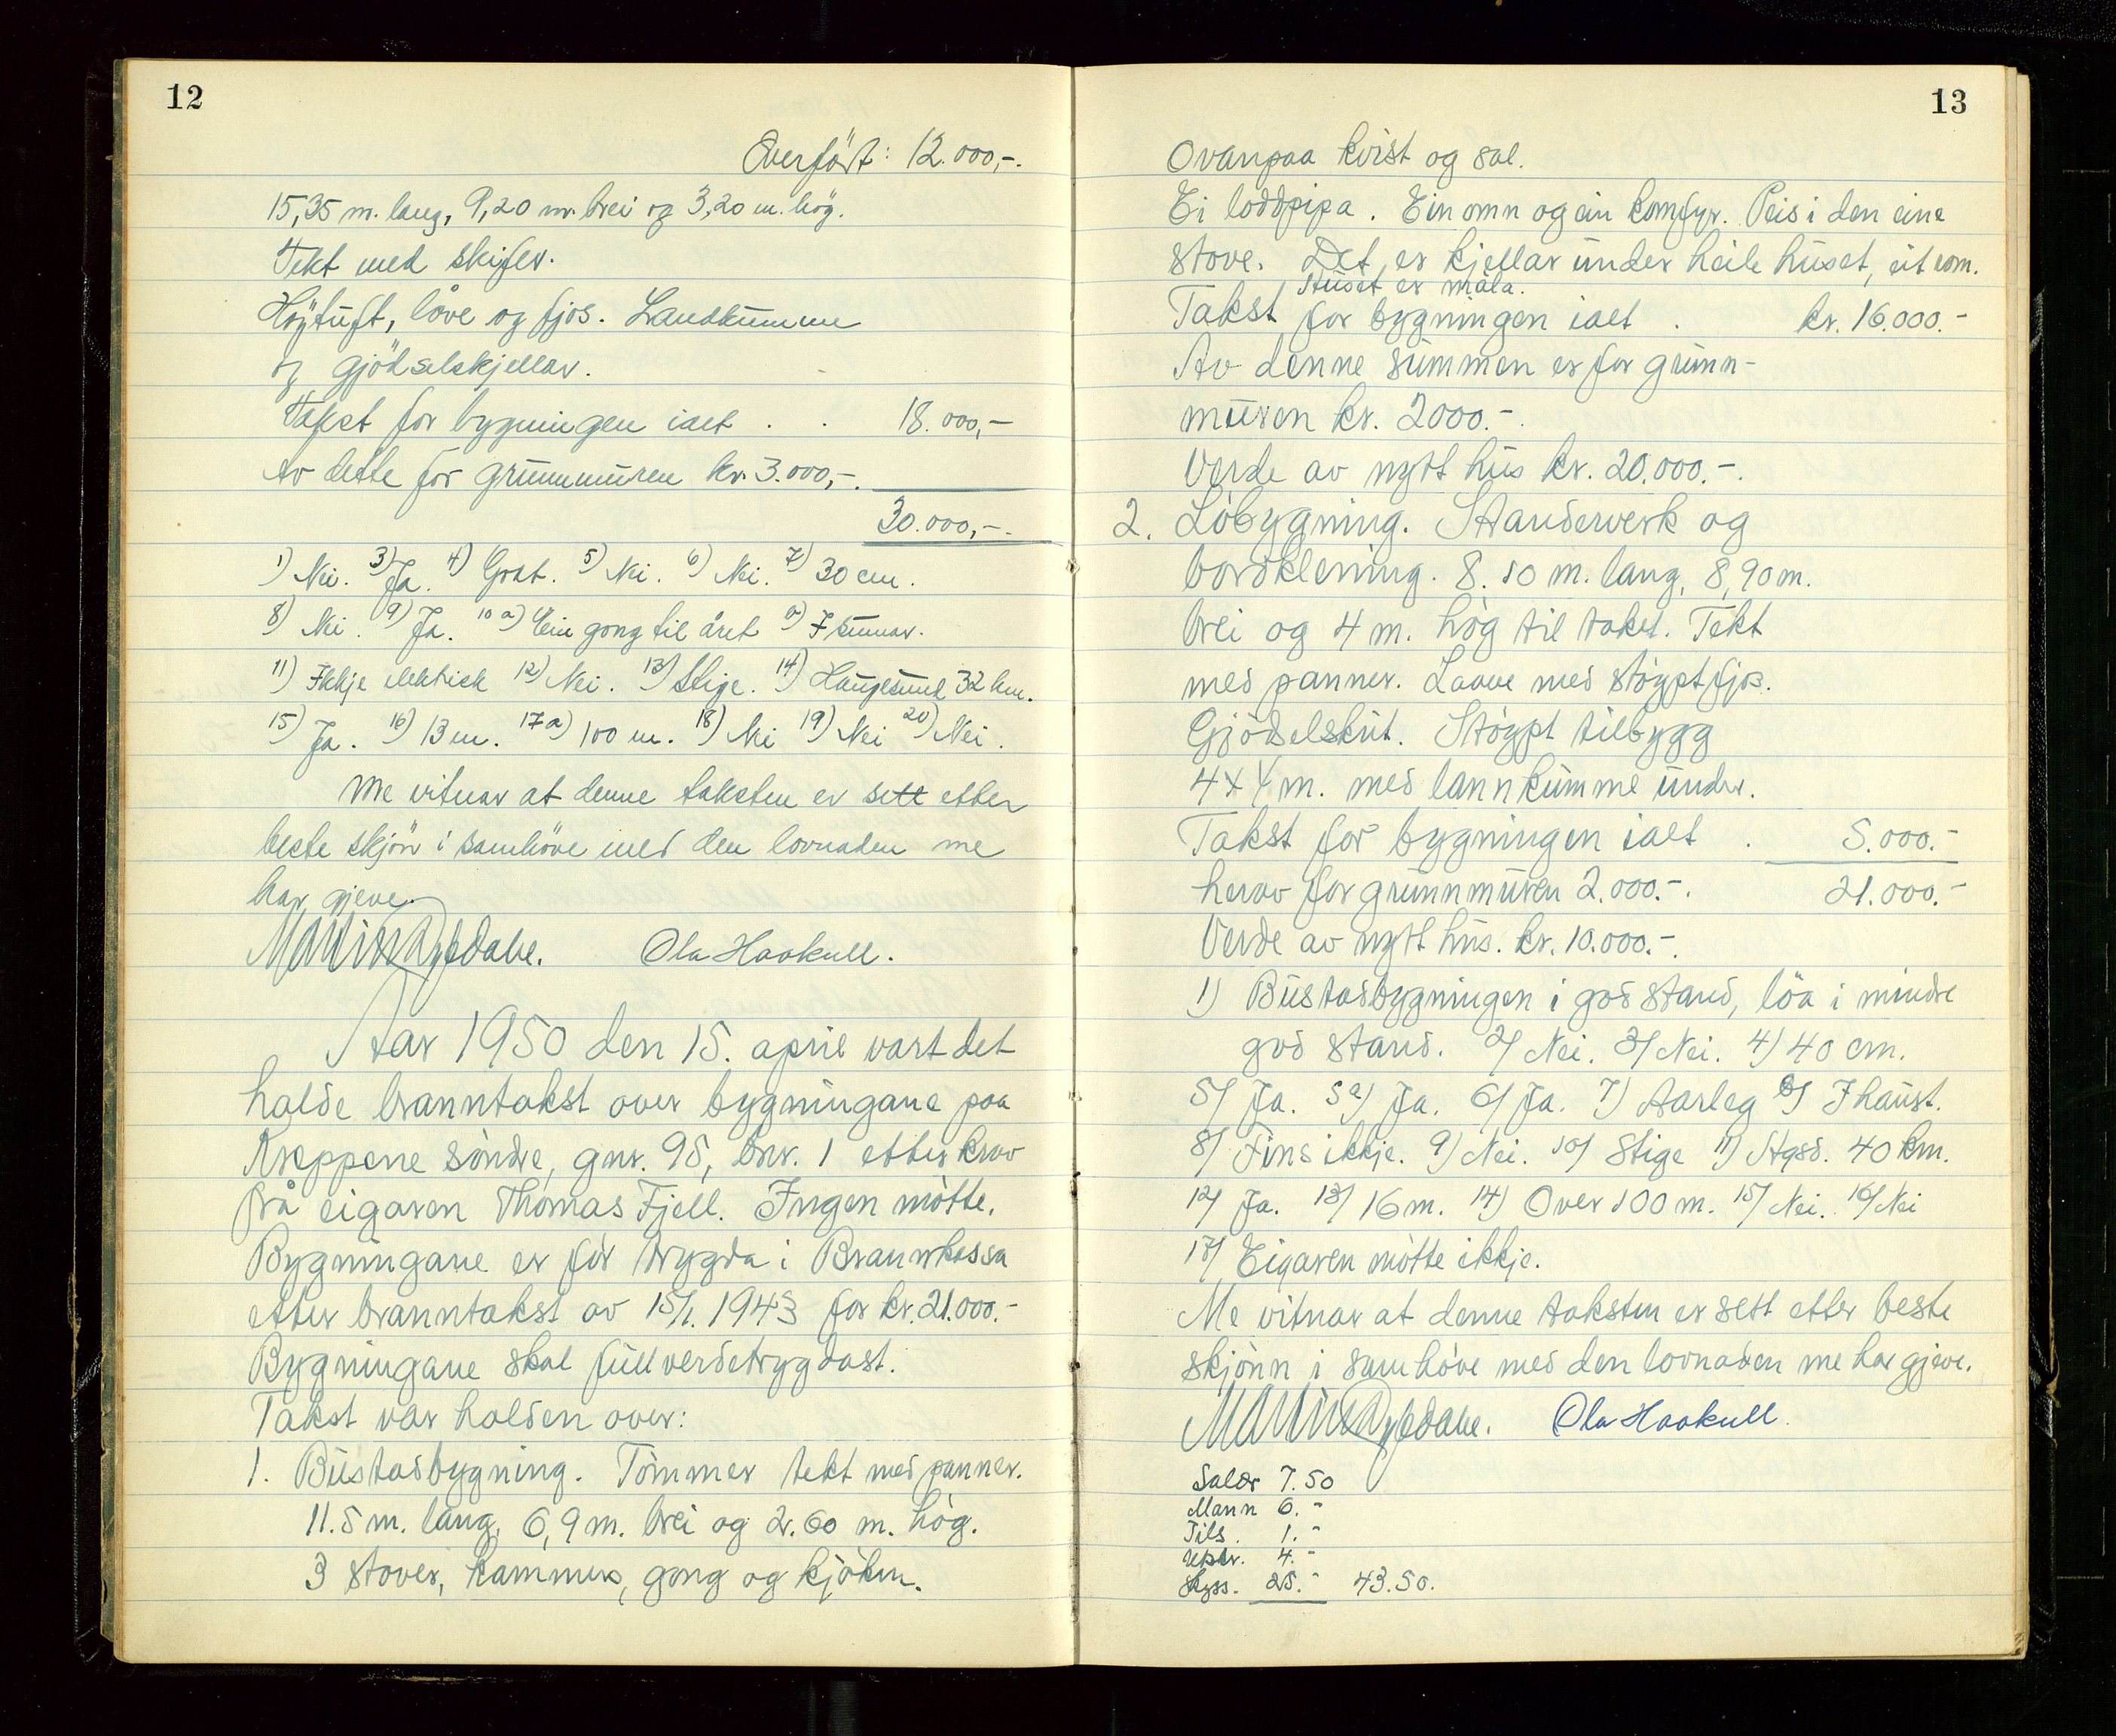 12
Överfört: 12.000,-.
15,35 m. lang, 9,20 m. brei og 3,20 m. hög.
Tekt med skifer.
Höytuft, löve og fjos. Landkumme
og gjödselskjellar.
Takst for bygningen ialt . . 18.000,-
Av dette for grunnmuren kr. 3.000,-.
30.000,-.
1) Nei. 3) Ja. 4) Grat. 5) Nei. 6) Nei. 7) 30 cm.
8) Nei. 9) Ja. 10 a) Ein gong til året b) I sumar.
11) Ikkje elektrisk 12) Nei. 13) Stige. 14) Haugesund 32 km.
15) Ja. 16) 13 m. 17a) 100 m. 18) Nei 19) Nei 20) Nei.
Me vitnar at denne taksten er sett etter
beste skjön i samhöve med den lovnaden me
har gjeve.
Ola Haakull.
Aar 1950 den 15. april vart det
halde branntakst over bygningane paa
Kreppene söndre, gnr. 95, bnr. 1 etter krav
frå eigaren Thomas Fjell. Ingen mötte.
Bygningane er för trygda i Brannkassa
etter branntakst av 15/1. 1943 for kr. 21.000.-
Bygningane skal fullverdetrygdast.
Takst var halden over:
1. Bustadbygning. Tömmer tekt med panner.
11.5 m. lang, 6,9 m. brei og 2.60 m. hög.
3 stover, kammers, gong og kjöken.
13
Ovanpaa kvist og sal.
Ei loddpipa. Ein omn og ein komfyr. Peis i den eine
stove. Det er kjellar under heile huset, eit rom.
Huset er måla.
Takst for bygningen ialt . kr. 16.000.-
Av denne summen er for grunn-
muren kr. 2000.-.
Verde av nytt hus kr. 20.000.-.
2. Löbygning. Standerverk og
bordklening. 8.10 m. lang, 8,90 m.
brei og 4 m. hög til taket. Tekt
med panner. Laave med stöypt fjos.
Gjödselskut. Stöypt tilbygg
4 x 4 m. med lannkumme under.
Takst for bygningen ialt . 5.000.-
herav for grunnmuren 2.000.-. 21.000.-
Verde av nytt hus. kr. 10.000.-.
1) Bustadbygningen i god stand, löa i mindre
god stand. 2) Nei. 3) Nei. 4) 40 cm.
5) Ja. 5a) Ja. 6) Ja. 7) Aarleg b) I haust.
8) Fins ikkje. 9) Nei. 10) Stige 11) Hgsd. 40 km.
12) Ja. 13) 16 m. 14) Over 100 m. 15) Nei. 16) Nei
17) Eigaren mötte ikkje.
Me vitnar at denne taksten er sett etter beste
skjönn i samhöve med den lovnaden me har gjeve.
Ola Haakull.
Salær 7.50
Mann 6.-
Tils. 1.-
Utskr. 4.-
Skyss. 25.- 43.50.